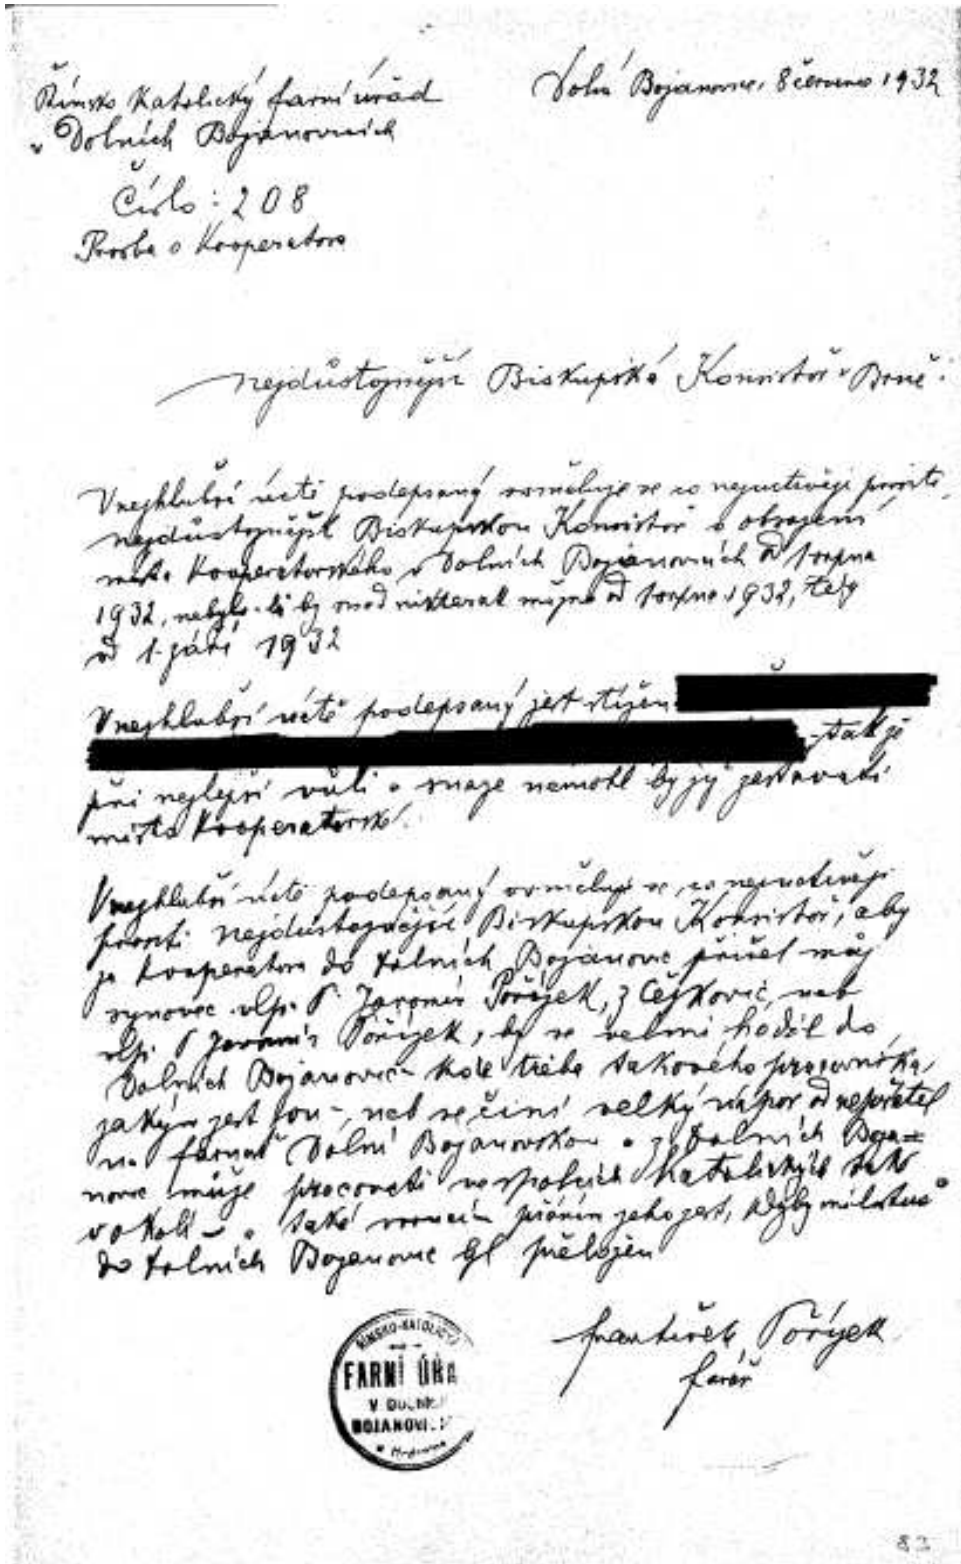 Římsko Katolický farní úřad
v Dolních Bojanovicích
Dolní Bojanovice, 8 června 1932
Číslo: 208
Prosba o Kooperatora
Nejdůstojnější Biskupská Konsistoř v Brně.
V nejhlubší úctě podepsaný osměluje se co nejuctivěji prositi
nejdůstojnější Biskupskou Konsistoř o obsazení
místa Kooperatorského v Dolních Bojanovicích od srpna
1932, nebylo-li by snad nikterak možno od srpna 1932, tedy
od 1. září 1932
V nejhlubší úctě podepsaný jest stížen
, tak že
při nejlepší vůli a snaze nemohl by jej zastávati
místo Kooperatorské.
V nejhlubší úctě podepsaný osměluje se, co nejuctivěji
prositi Nejdůstojnější Biskupskou Konsistoř, aby
za kooperatora do Dolních Bojanovic přišel můj
synovec vlp. P. Jaromír Pořízek, z Čejkovic, neb
vlp. P. Jaromír Pořízek, by se velmi hodil do
Dolních Bojanovic - kde třeba takového pracovníka,
jakým jest on -, neb se činí velký nápor od nepřátel
na farnost Dolní Bojanovskou a z Dolních Boja=
novic může pracovati ve spolcích Katolických také
v okolí - a také vroucím přáním jeho jest, kdyby milostivě
do Dolních Bojanovic byl přeložen
František Pořízek
farář
ŘÍMSKO-KATOLICKÝ
FARNÍ ÚŘA
V DOLNÍC
BOJANOVI
82